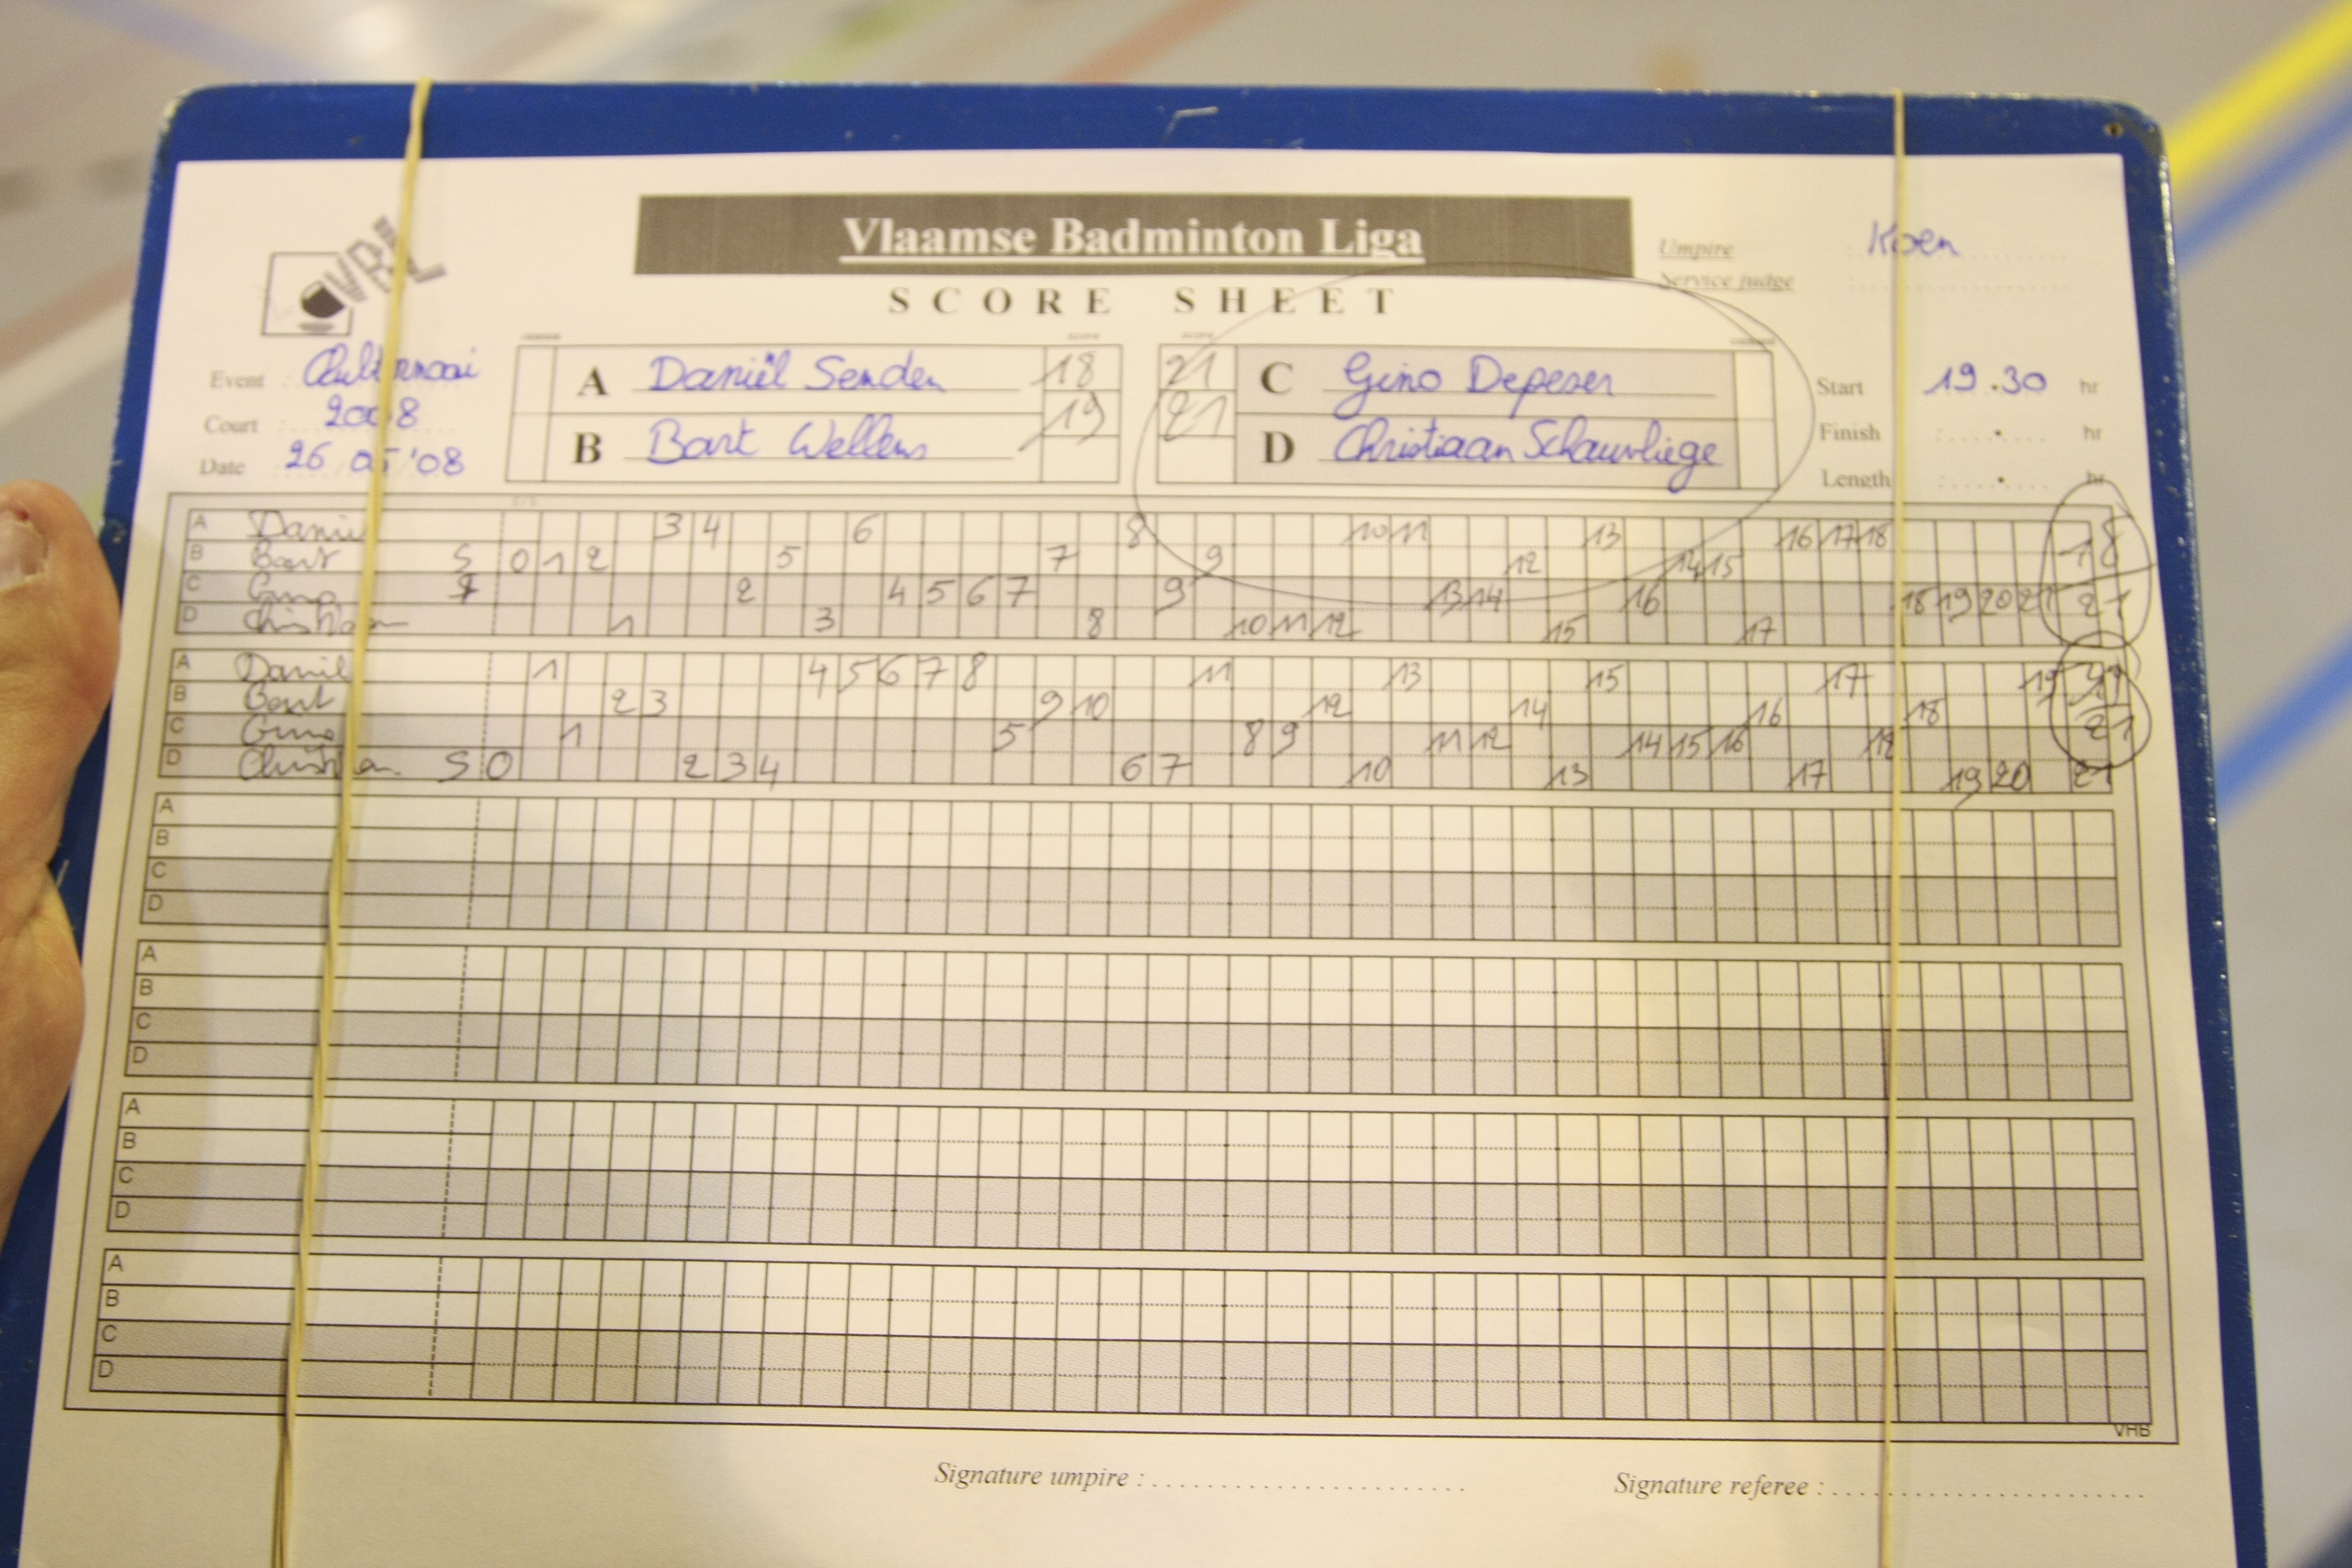 VBL
Vlaamse Badminton Liga
SCORE SHEET
Umpire : Koen
Service judge :
Event :
Court : 2008
Date : 26/05/'08
A Daniël Senden 18
B Bart Wellens 19
21 C Gino Depeser
21 D Christiaan Schauvliege
Start 19.30 hr
Finish : . hr
Length : . hr
A Daniel 3 4 6 8 10 11 13 16 17 18 18
B Bart S 0 1 2 5 7 9 12 14 15
C Gino 2 4 5 6 7 9 13 14 16 18 19 20 21 21
D Christiaan 1 3 8 10 11 12 15 17
A Daniel 1 4 5 6 7 8 11 13 15 17 19
B Bart 2 3 9 10 12 14 16 18
C Gino 1 5 8 9 11 12 14 15 16 18 21
D Christiaan S 0 2 3 4 6 7 10 13 17 19 20 21
A
B
C
D
A
B
C
D
A
B
C
D
A
B
C
D
VHB
Signature umpire :
Signature referee :